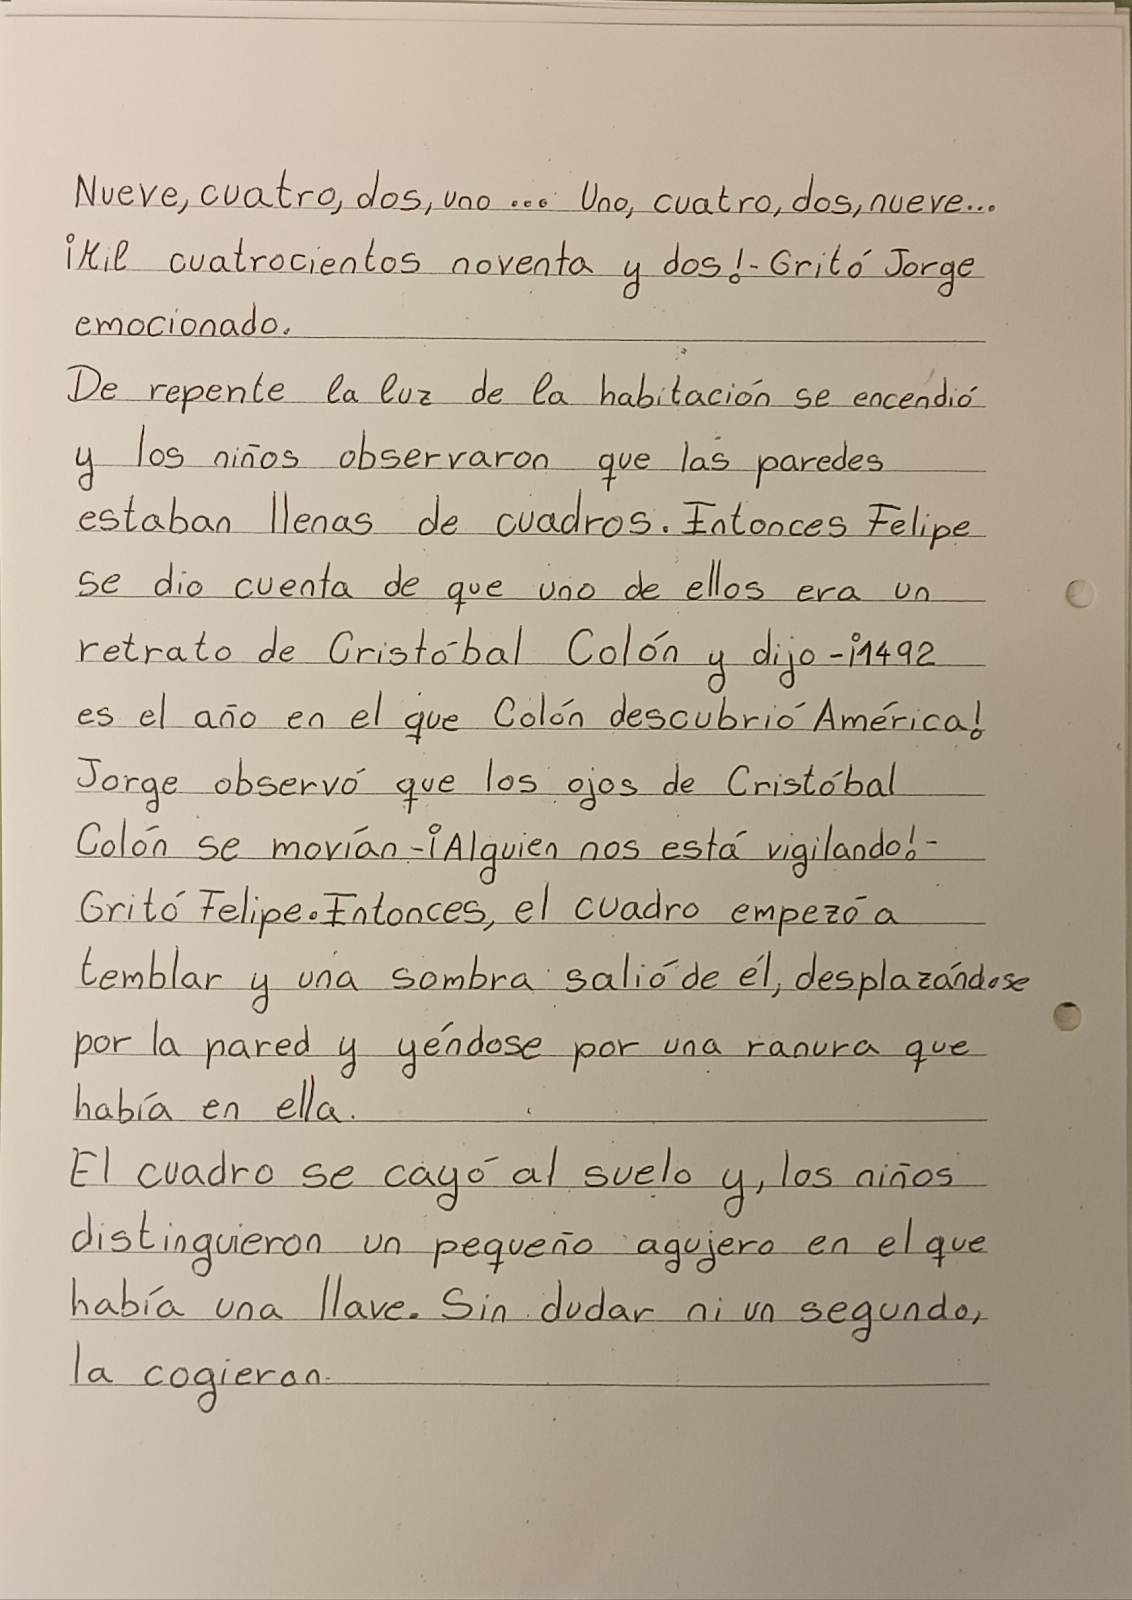 Nueve, cuatro, dos, uno ... Uno, cuatro, dos, nueve...
¡Mil cuatrocientos noventa y dos!- Gritó Jorge
emocionado.
De repente la luz de la habitación se encendió
y los niños observaron que las paredes
estaban llenas de cuadros. Entonces Felipe
se dio cuenta de que uno de ellos era un
retrato de Cristóbal Colón y dijo -¡1492
es el año en el que Colón descubrió América!
Jorge observó que los ojos de Cristóbal
Colón se movían -¡Alguien nos está vigilando!-
Gritó Felipe. Entonces, el cuadro empezó a
temblar y una sombra salió de él, desplazándose
por la pared y yéndose por una ranura que
había en ella.
El cuadro se cayó al suelo y, los niños
distinguieron un pequeño agujero en el que
había una llave. Sin dudar ni un segundo,
la cogieron.